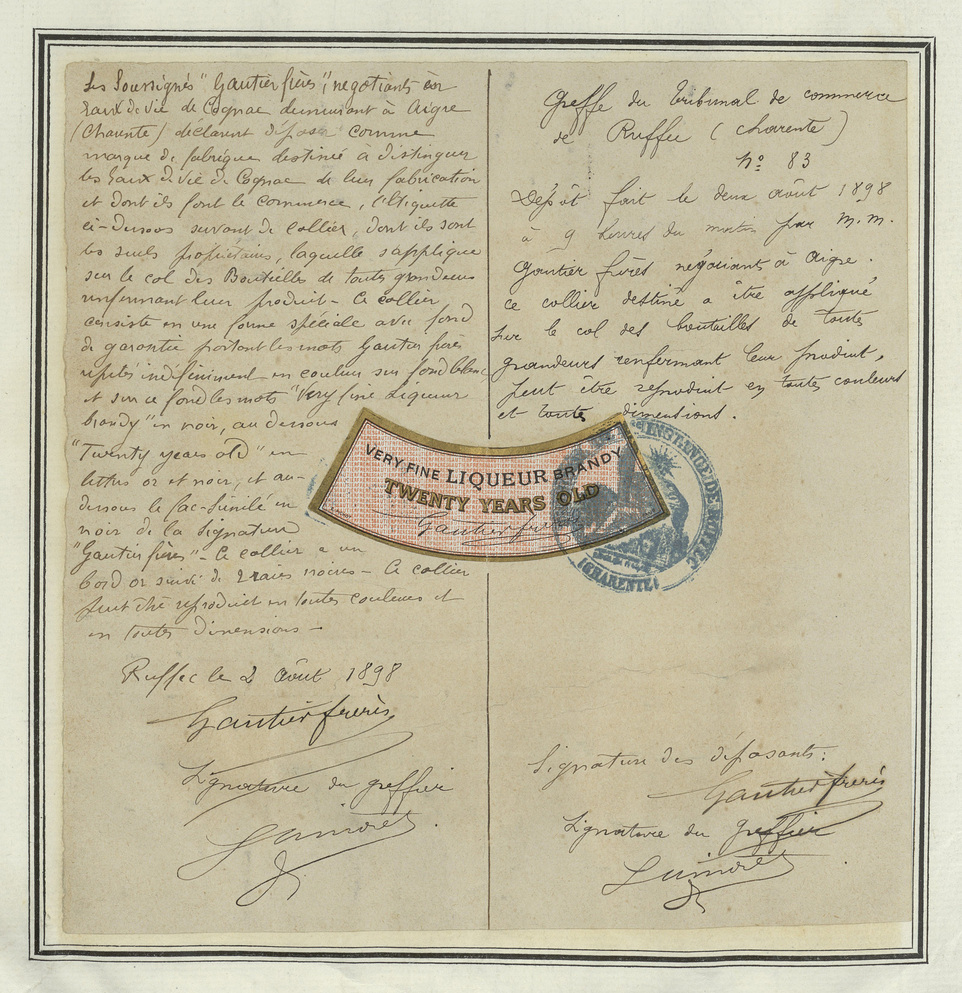 Les Soussignés "Gautier frères", négotiants en
Eaux de vie de Cognac demeurant à Aigre
(Charente) déclarent déposer comme
marque de fabrique destinée à distinguer
les Eaux de Vie de Cognac de leur fabrication
et dont ils font le commerce, l'Etiquette
ci-dessous servant de collier, dont ils sont
les seuls propriétaires, laquelle s'applique
sur le col des Bouteilles de toutes grandeurs
renfermant leur produit - Ce collier
consiste en une forme spéciale avec fond
de garantie portant les mots Gautier frères
répétés indéfiniment en couleur sur fond blanc
et sur ce fond les mots "Very fine Liqueur
brandy" en noir, au dessous
"Twenty years old" en
lettres or et noir, et au-
dessous le fac-similé en
noir de la Signature
"Gautier frères" - Ce collier a un
bord or suivi de 2 raies noires - Ce collier
peut être reproduit en toutes couleurs et
en toutes dimensions -
Ruffec le 2 Août 1898
Gautier frères
Signature du greffier
Greffe du Tribunal de commerce
de Ruffec (Charente)
No 83
Dépôt fait le deux Août 1898
à 9 heures du matin par M.M.
Gautier frères négotiants à Aigre.
ce collier destiné a être appliqué
sur le col des bouteilles de toutes
grandeurs renfermant leur produit,
peut être reproduit en toutes couleurs
et toutes dimensions.
VERY FINE LIQUEUR BRANDY
TWENTY YEARS OLD
Gautier frères
INST. DE RUFFEC
(CHARENTE)
Signature des déposants:
Gautier frères
Signature du greffier